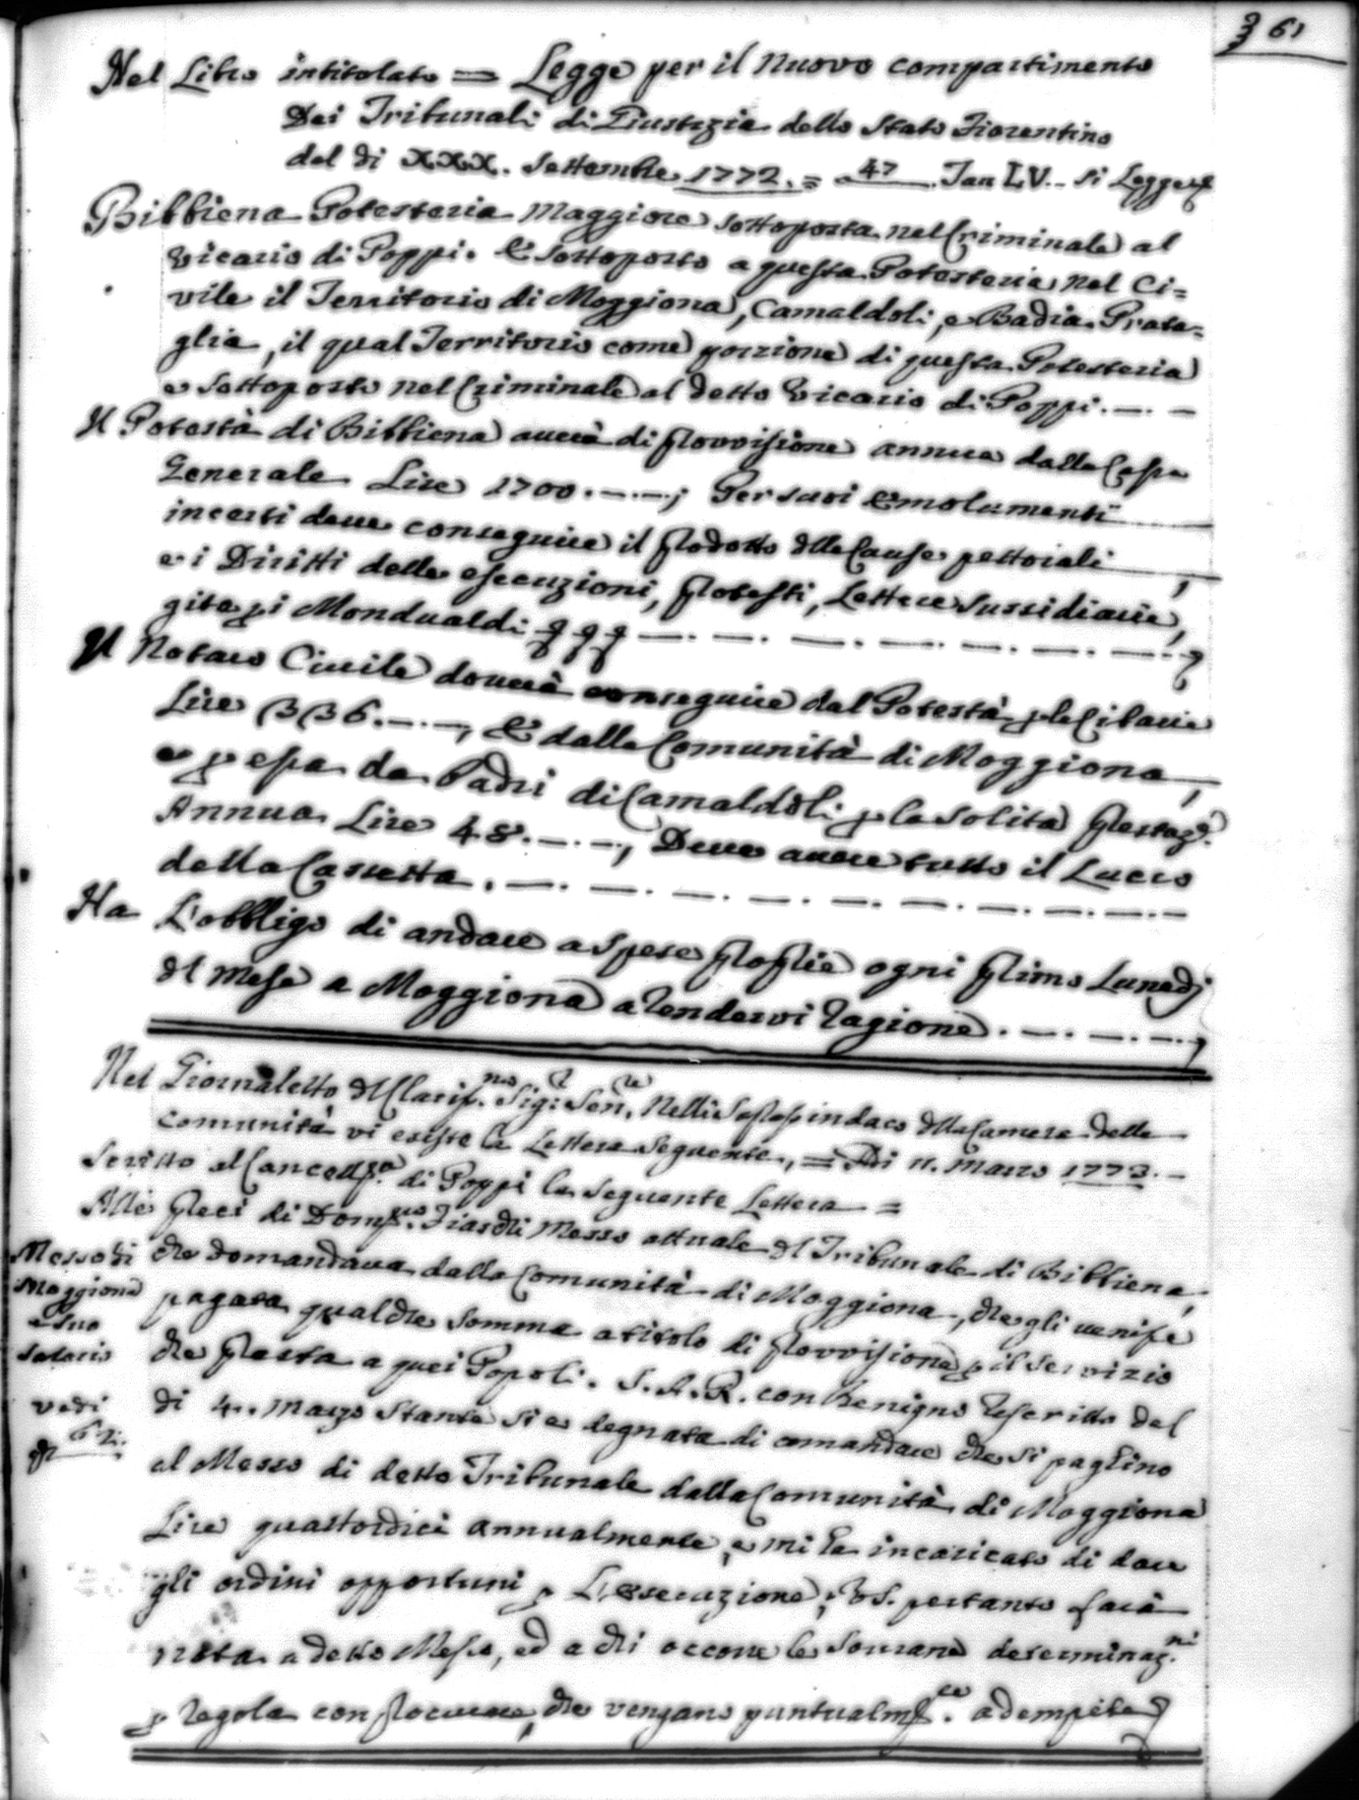 361
Nel Libro intitolato = Legge per il nuovo compartimento
Dei Tribunali di Giustizia dello Stato Fiorentino
del di XXX. Settembre 1772. = a 47 Tan LV.. si Legge
Bibbiena Potesteria Maggiore sottoposta nel Criminale al
Vicario di Poppi. È sottoposto a questa Potesteria nel Ci=
vile il Territorio di Moggiona, Camaldoli, e Badia Prata=
glia, il qual Territorio come porzione di questa Potesteria
e sottoposto nel Criminale al detto Vicario di Poppi. —. —
Il Potestà di Bibbiena averà di provvisione annua dalla Cassa
Generale Lire 1700. —.—; Per suoi Emolumenti
incerti deve conseguire il prodotto dlle Cause pettoriali
e i Diritti delle esecuzioni, protesti, Lettere Sussidiarie,
gite p i Mondualdi
Il Notaro Civile doverà conseguire dal Potestà p le Cibarie
Lire 336.—.—, E dalla Comunità di Moggiona,
e p essa da Padri di Camaldoli p la solita prestaz.e
Annua Lire 48.—.—, Deve avere tutto il Lucro
della Cassetta.
Ha L'obbligo di andare a spese proprie ogni primo Lunedj
dl mese a Moggiona a rendervi ragione.
Nel Giornaletto dl Claris.mo Sig.r Sen.re Nelli Soprasindaco dlla Camera delle
Comunità vi esiste la Lettera seguente, = Adi 11. Marzo 1773.—
Scritto al Cancell.re di Poppi la seguente Lettera =
Alle preci di Dom.co Ticciardi Messo attuale dl Tribunale di Bibbiena,
che domandava dalla Comunità di Moggiona, che gli venisse
pagata qualche somma a titolo di provvisione p il servizio
che presta a quei Popoli. S. A. R. con Benigno rescritto del
di 4. marzo stante si e degnata di comandare che si paghino
al Messo di detto Tribunale dalla Comunità di Moggiona
Lire quattordici annualmente, e mi ha incaricato di dare
gli ordini opportuni p L'esecuzione; VS. pertanto farà
nota a detto Messo, ed a chi occorre le sovrane determinaz.ni
p regola con procurare, che vengano puntualm.te adempite
Messo di
Moggiona
e suo
salario
vedi
62.